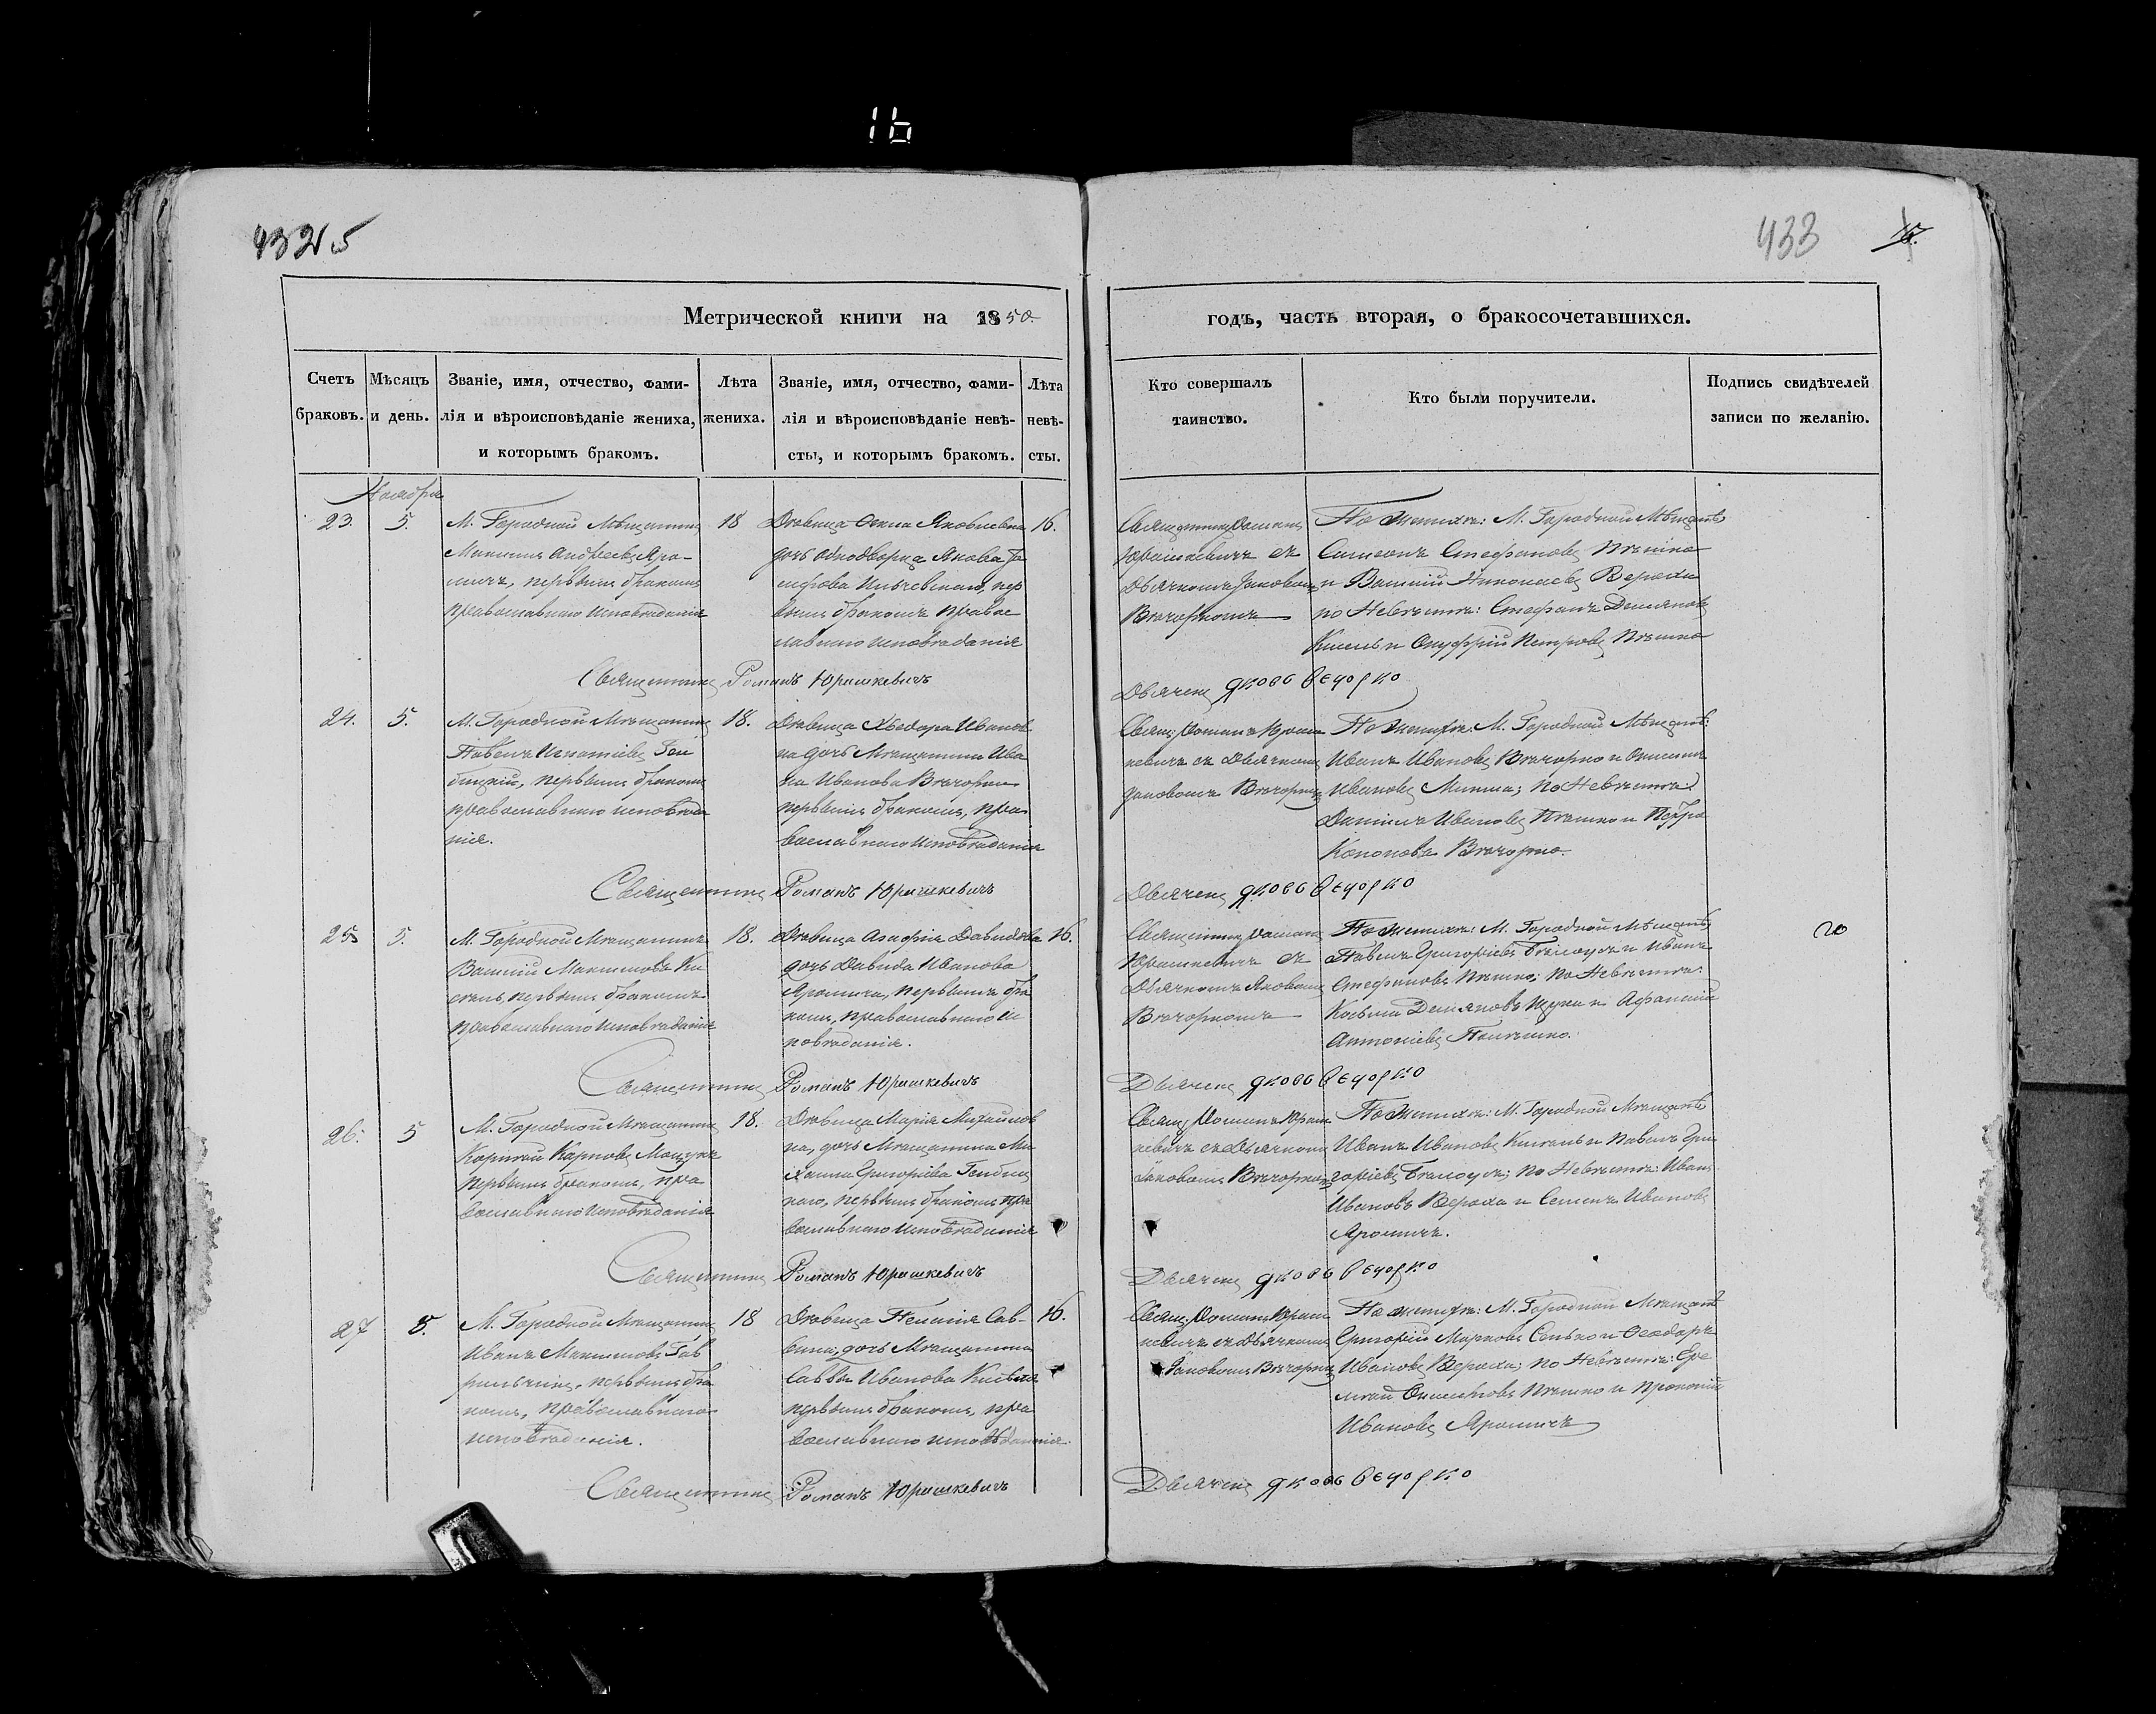 16
432
5
433
Метрической книги на 1850.
годъ, часть вторая, о бракосочетавшихся.
Счетъ браковъ.
Мѣсяцъ и день.
Званіе, имя, отчество, фами-
лія и вѣроисповѣданіе жениха,
и которымъ бракомъ.
Лѣта жениха.
Званіе, имя, отчество, фами-
лія и вѣроисповѣданіе невѣ-
сты, и которымъ бракомъ.
Лѣта невѣ-
сты.
Кто совершалъ
таинство.
Кто были поручители.
Подпись свидѣтелей
записи по желанію.
Ноября
23.
5.
М. Городной Мѣщанинъ
Максимъ Андреевъ Яро-
мичъ, первымъ бракомъ
православнаго исповѣданія
18
Дѣвица Яковлевна
дочь однодворца Якова
первымъ бракомъ правос
лавнаго исповѣданія
16.
Священникъ Романъ
Юрашкевичъ съ
Дьячкомъ Яковомъ
Вѣчоркомъ
По женихѣ: М. Городной Мѣщанѣ
Симеонъ Стефановъ Пѣшко
и Василій Николаевъ Вераха
по Невѣстѣ: Стефанъ Демяновъ
Кисель и Онуфрій Петровъ Пѣшко
Священникъ Романъ Юрашкевичъ
Дьячекъ Яковъ Вечорко
24.
5.
М. Городной Мѣщанинъ
Павелъ Игнатіевъ Ген
бицкій, первымъ бракомъ
православнаго исповѣда
нія.
18.
Дѣвица Ѳеодора Иванов
на дочь Мѣщанина Ива
на Иванова Вѣчорки
первымъ бракомъ, пра
вославнаго исповѣданія
Свящ. Романъ Юраш
кевичъ съ Дьячкомъ
Яковомъ Вѣчоркомъ
По женихѣ: М. Городной Мѣщанѣ:
Иванъ Ивановъ Вѣчорко и Онисимъ
Ивановъ; по Невѣстѣ:
Даніилъ Ивановъ Пѣшко и Петръ
Кононовъ Вѣчорко.
Священникъ Романъ Юрашкевичъ
Дьячекъ Яковъ Вечорко
25
5.
М. Городной Мѣщанинъ
Василій Максимовъ Ки
сель, первымъ бракомъ
православнаго исповѣданія
18.
Дѣвица Агафія Давидова
дочь Давида Иванова
Яромича, первымъ бра
комъ, православнаго ис
повѣданія.
16.
Священникъ Романъ
Юрашкевичъ съ
Дьячкомъ Яковомъ
Вѣчоркомъ
По женихѣ: М. Городной Мѣщанѣ
Павелъ Григоріевъ Бѣлоусъ и Иванъ
Стефановъ Пѣшко; по Невѣстѣ:
Косьма Демяновъ и Афанасій
Антоніевъ
Священникъ Романъ Юрашкевичъ
Дьячекъ Яковъ Вечорко
26.
5
М. Городной Мѣщанинъ
Корнилій Карповъ
первымъ бракомъ, пра
вославнаго исповѣданія
18.
Дѣвица Марія Михайлов
на, дочь Мѣщанина Ми
хаила Григоріева Генбиц
каго, первымъ бракомъ пра
вославнаго исповѣданія
Свящ. Романъ Юраш
кевичъ съ Дьячкомъ
Яковомъ Вѣчоркомъ
По женихѣ: М. Городной Мѣщанѣ
Иванъ Ивановъ Кисель и Павелъ Гри
горіевъ Бѣлоусъ; по Невѣстѣ: Иванъ
Ивановъ Вераха и Семенъ Ивановъ
Яромичъ.
Священникъ Романъ Юрашкевичъ
Дьячекъ Яковъ Вечорко
27
5.
М. Городной Мѣщанинъ
Иванъ Максимовъ Гав
рильчикъ, первымъ бра
комъ, православнаго
исповѣданія.
18
Дѣвица Пелагія Сав-
вина, дочь Мѣщанина
Саввы Иванова Киселя
первымъ бракомъ, пра
вославнаго исповѣданія.
16.
Свящ. Романъ Юраш
кевичъ съ Дьячкомъ
Яковомъ Вѣчоркомъ
По женихѣ: М. Городной Мѣщанѣ
Григорій Марковъ Сенько и Ѳеодоръ
Ивановъ Вераха; по Невѣстѣ: Ере
мей Пѣшко и Прокопій
Ивановъ Яромичъ
Священникъ Романъ Юрашкевичъ
Дьячекъ Яковъ Вечорко